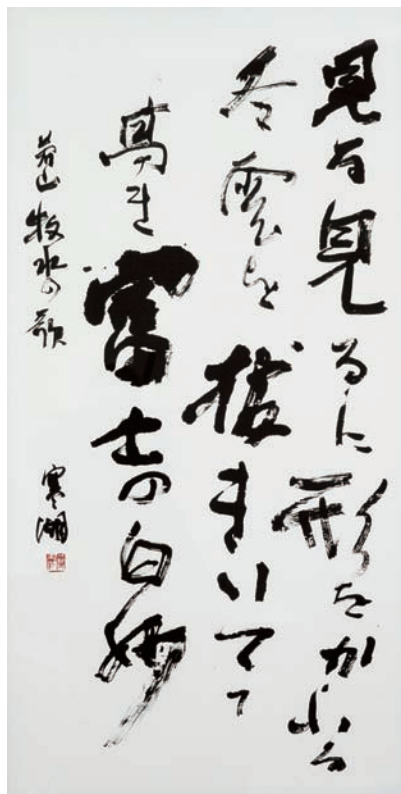 見る見るに形をかふる
冬雲を抜きいてて
高き富士の白妙
若山牧水の歌
寒湖